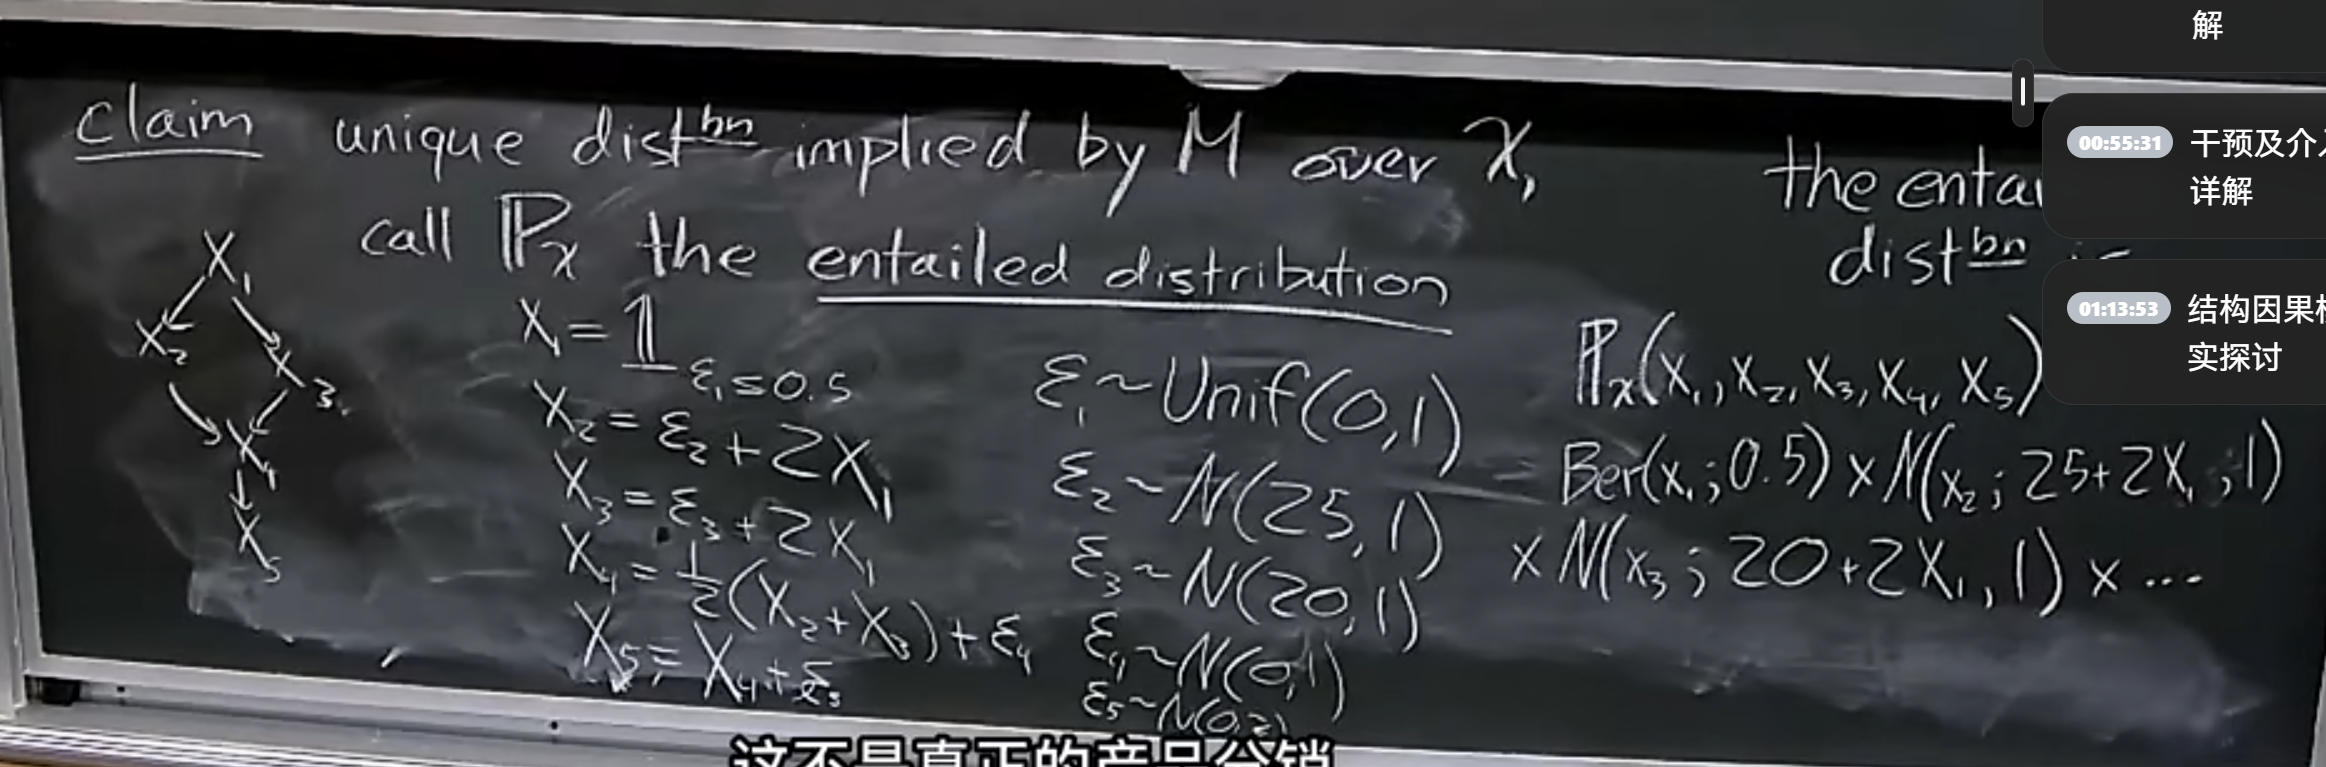 claim unique distbn implied by M over X,
call ℙx the entailed distribution
X1
X2
X3
X4
X5
X1 = 𝟙 ε1≤0.5
X2 = ε2 + 2X1
X3 = ε3 + 2X1
X4 = 1/2(X2+X3)+ε4
X5 = X4+ε5
ε1 ~ Unif(0,1)
ε2 ~ N(25,1)
ε3 ~ N(20,1)
ε4 ~ N(0,1)
ε5 ~ N(0,2)
the
distbn
ℙx(X1, X2, X3, X4, X5)
Ber(x1;0.5) x N(x2; 25+2X1;1)
x N(x3; 20+2X1,1) x ...
解
00:55:31 干预及介
详解
01:13:53 结构因果
实探讨
这不是真正的产品分销